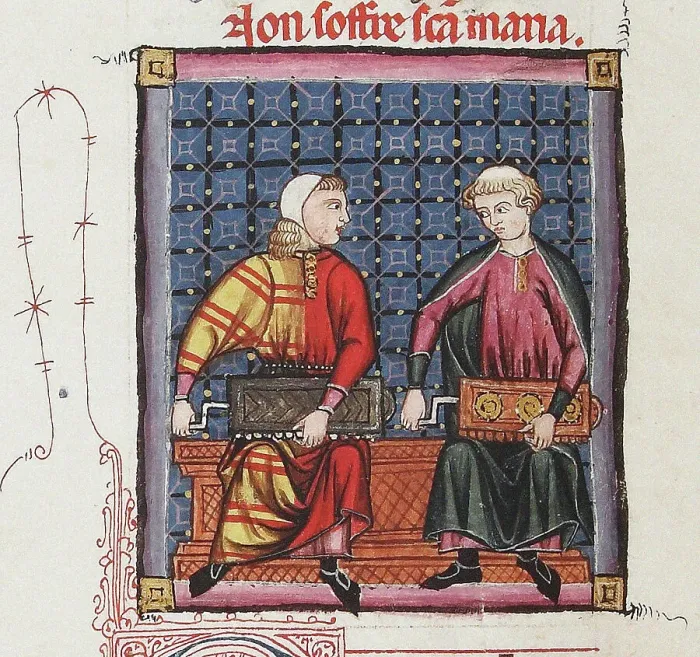 non soffre scã maria.